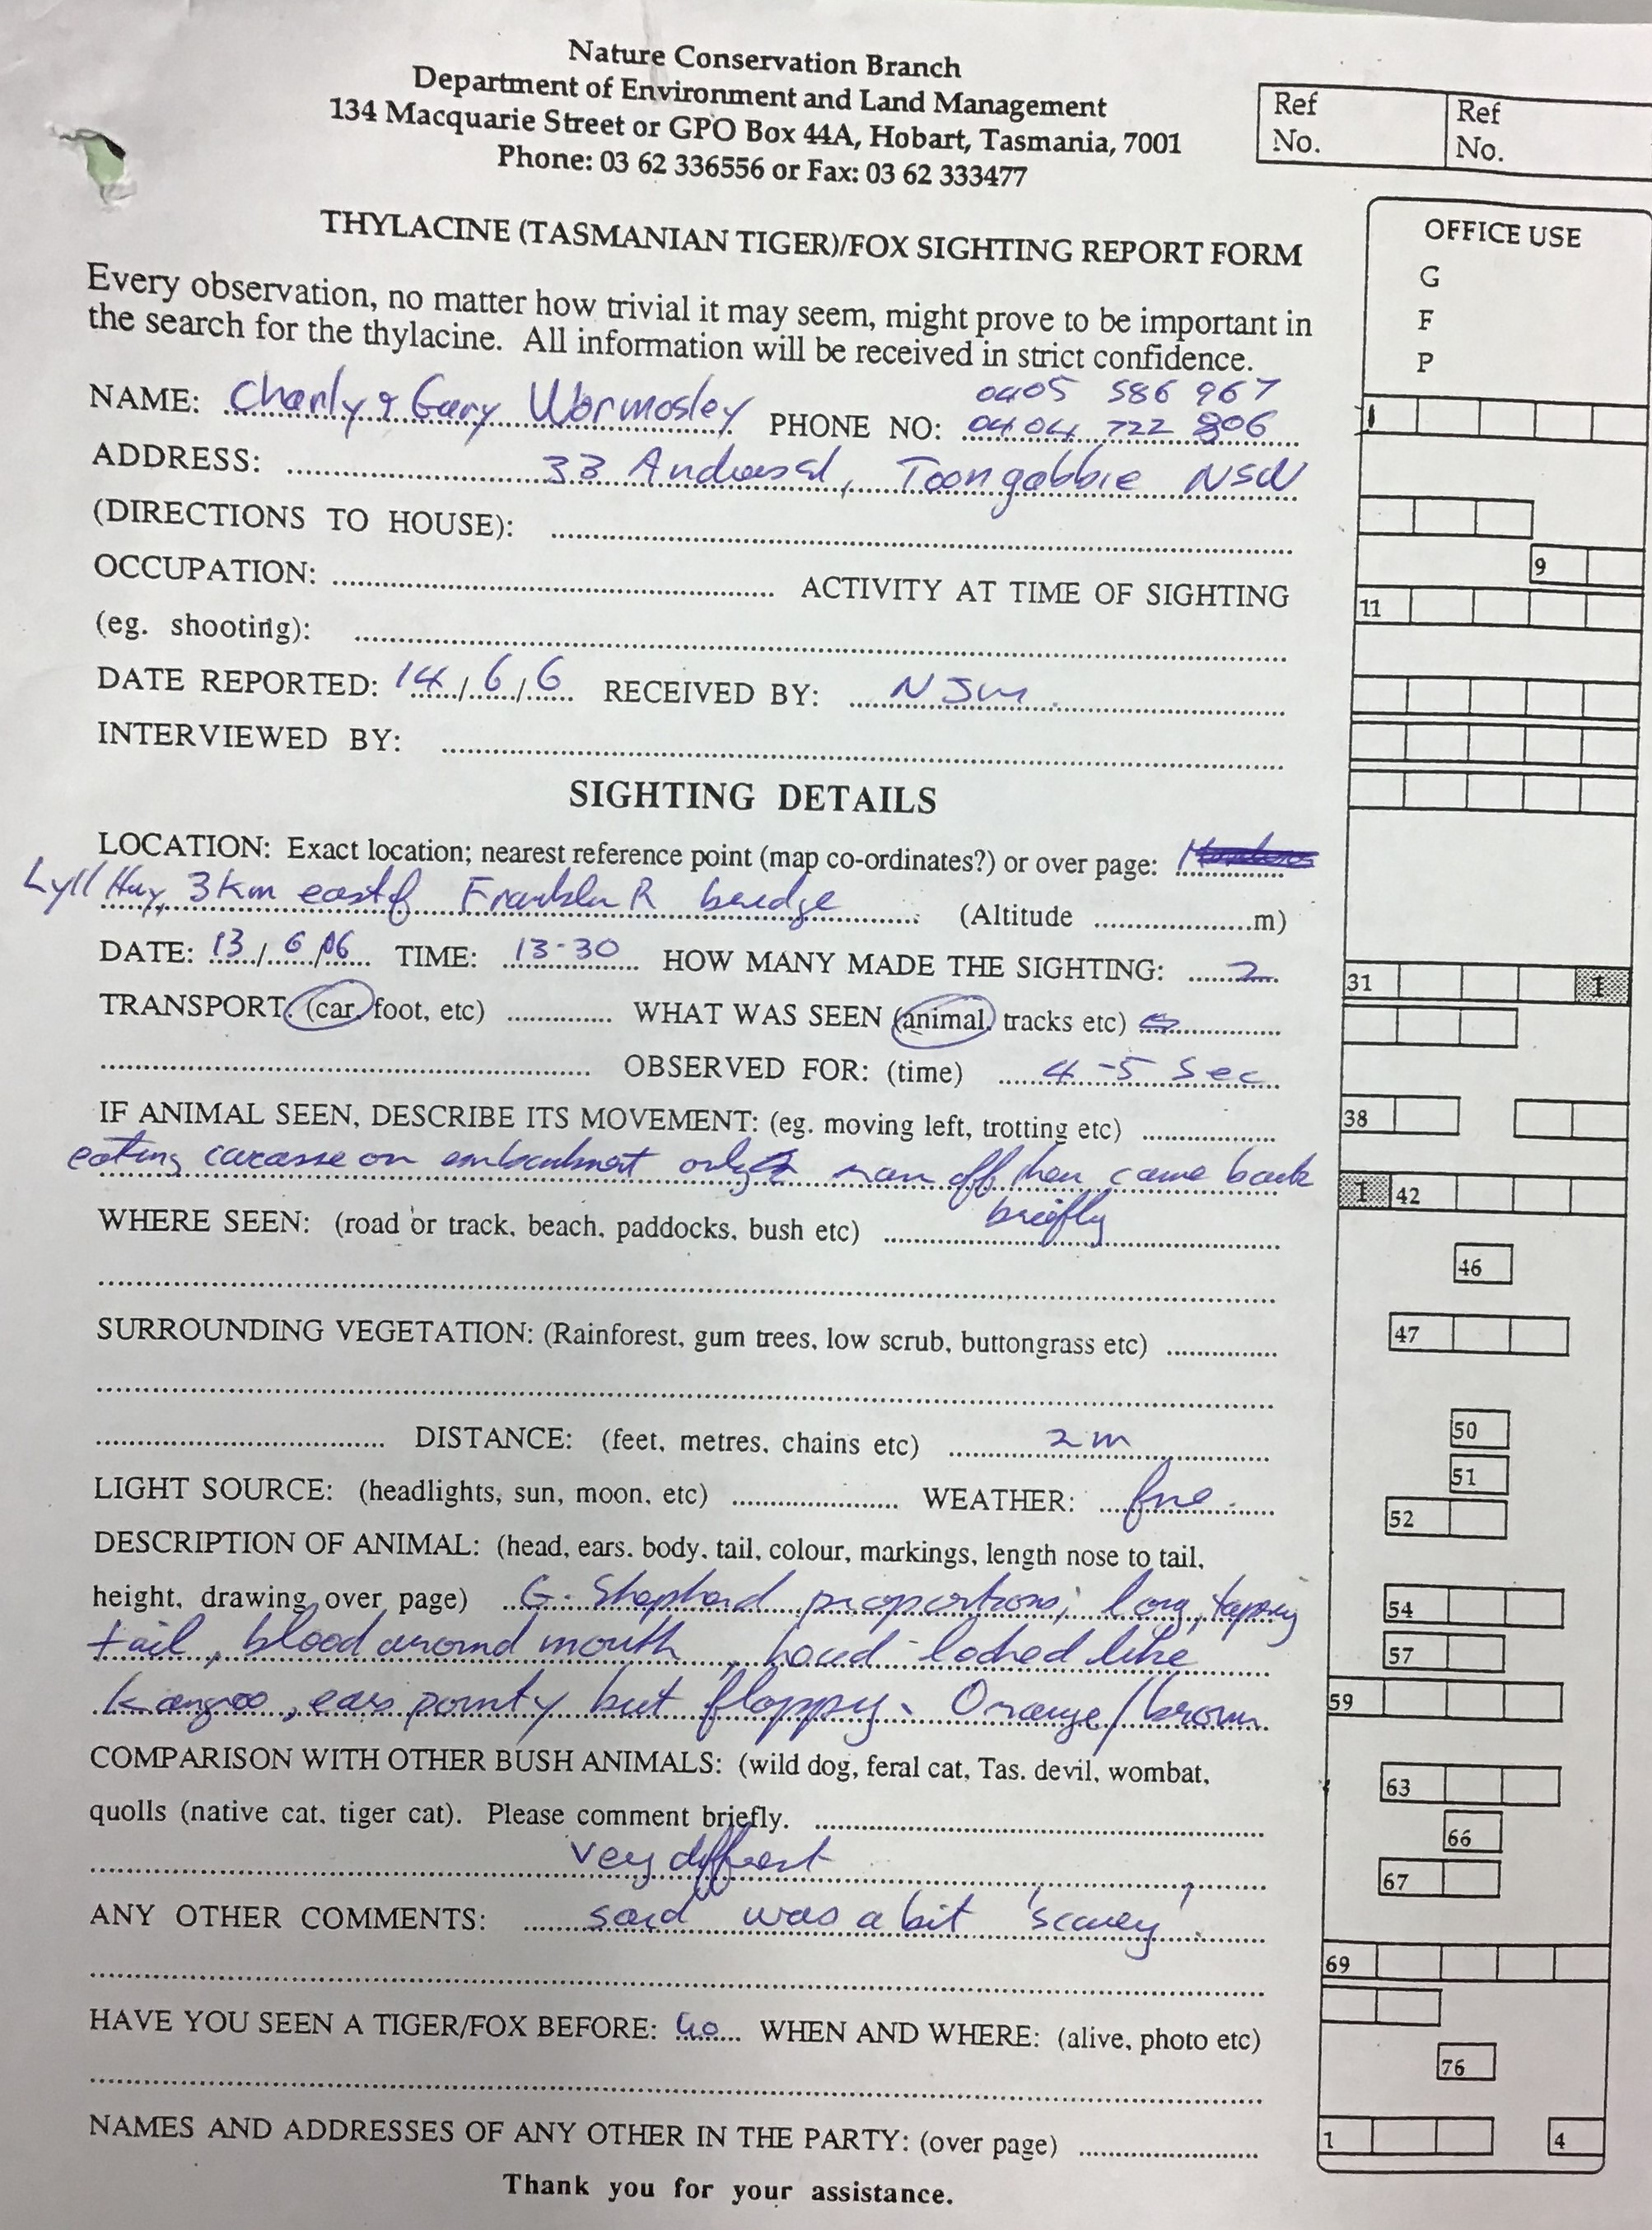 Nature Conservation Branch
Department of Environment and Land Management
134 Macquarie Street or GPO Box 44A, Hobart, Tasmania, 7001
Phone: 03 62 336556 or Fax: 03 62 333477
Ref No.
Ref No.
THYLACINE (TASMANIAN TIGER)/FOX SIGHTING REPORT FORM
Every observation, no matter how trivial it may seem, might prove to be important in
the search for the thylacine. All information will be received in strict confidence.
OFFICE USE
G
F
P
0405 586 967
NAME: Charly & Gary Wormosley PHONE NO: 0404 722 806
ADDRESS: 33 Toongabbie NSW
(DIRECTIONS TO HOUSE):
OCCUPATION: ACTIVITY AT TIME OF SIGHTING
(eg. shooting):
DATE REPORTED: 14/6/6 RECEIVED BY: NJM
INTERVIEWED BY:
SIGHTING DETAILS
LOCATION: Exact location; nearest reference point (map co-ordinates?) or over page:
Lyll Hwy, 3km east of Franklin R bridge (Altitude m)
DATE: 13/6/06 TIME: 13-30 HOW MANY MADE THE SIGHTING: 2
TRANSPORT: (car, foot, etc) WHAT WAS SEEN (animal, tracks etc)
OBSERVED FOR: (time) 4-5 sec
IF ANIMAL SEEN, DESCRIBE ITS MOVEMENT: (eg. moving left, trotting etc)
eating carcasse on embankment only ran off then came back
briefly
WHERE SEEN: (road or track, beach, paddocks, bush etc)
SURROUNDING VEGETATION: (Rainforest, gum trees, low scrub, buttongrass etc)
DISTANCE: (feet, metres, chains etc) 2m
LIGHT SOURCE: (headlights, sun, moon, etc) WEATHER: fine
DESCRIPTION OF ANIMAL: (head, ears, body, tail, colour, markings, length nose to tail,
height, drawing over page) G. Shepherd proportions, long, tapering
tail, blood around mouth, head looked like
kangroo, ears pointy but floppy. Orange/brown
COMPARISON WITH OTHER BUSH ANIMALS: (wild dog, feral cat, Tas. devil, wombat,
quolls (native cat, tiger cat). Please comment briefly.
Very different
ANY OTHER COMMENTS: said was a bit 'scarey'.
HAVE YOU SEEN A TIGER/FOX BEFORE: WHEN AND WHERE: (alive, photo etc)
NAMES AND ADDRESSES OF ANY OTHER IN THE PARTY: (over page)
Thank you for your assistance.
1
9
11
31 1
38
1 42
46
47
50
51
52
54
57
59
63
66
67
69
76
1 4